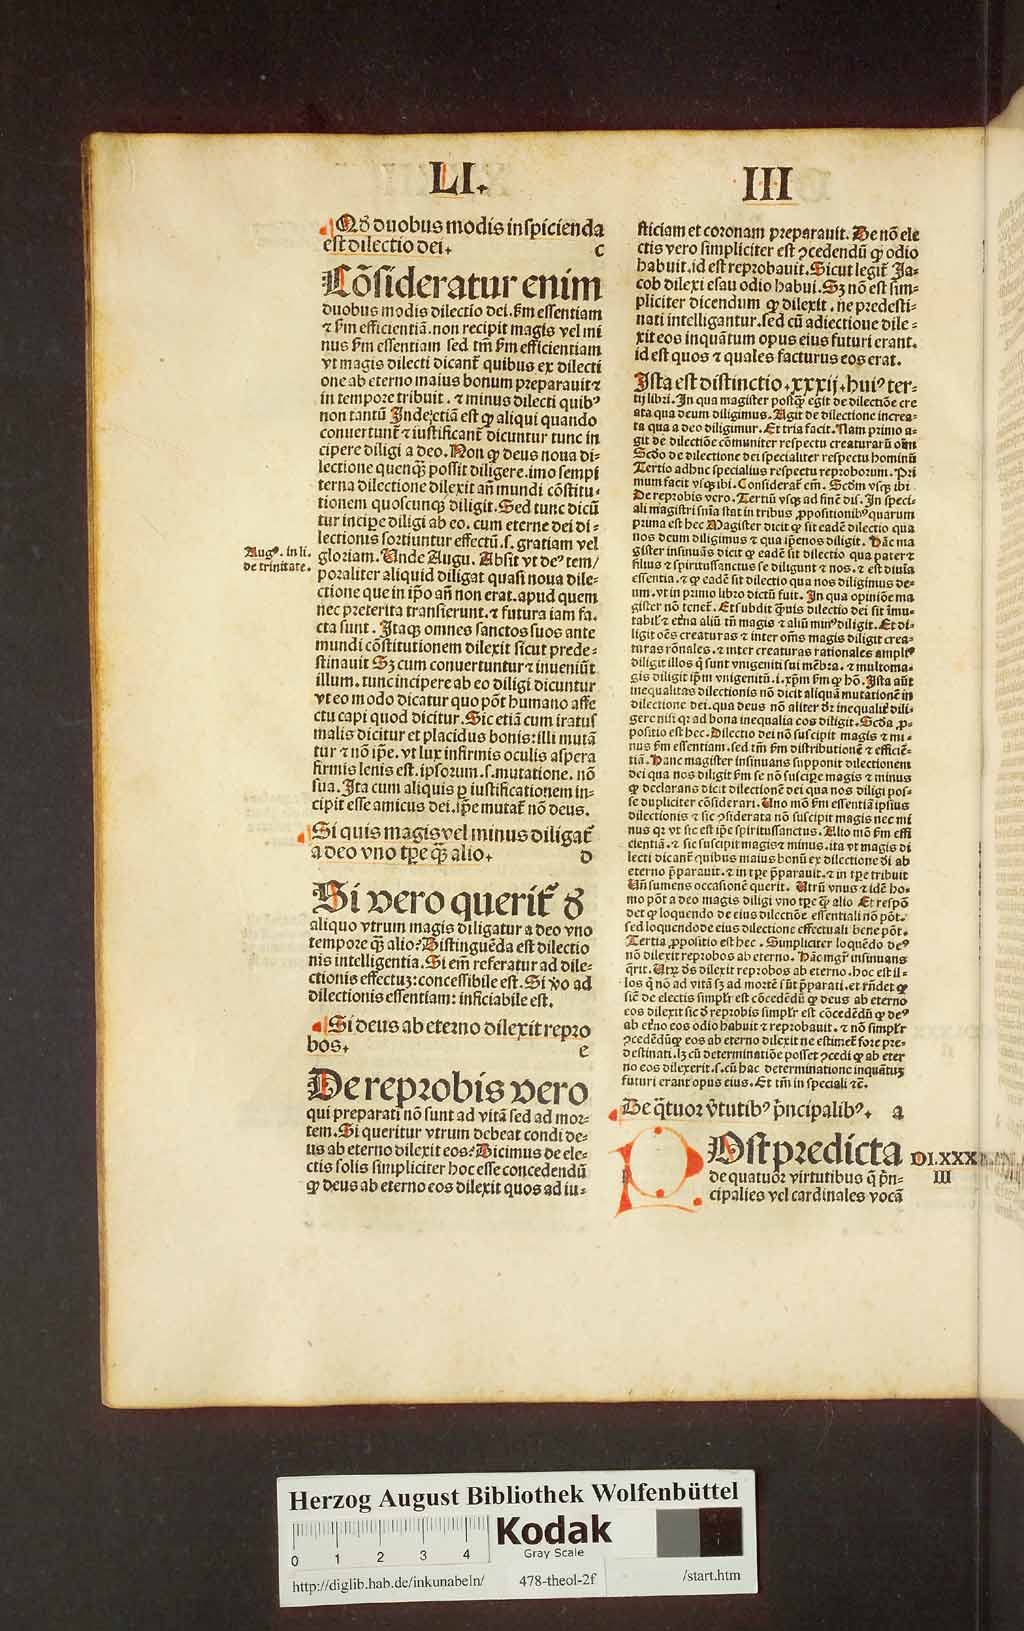 LI.
III
Qd duobus modis inspicienda
est dilectio dei. c
Cōsideratur enim
duobus modis dilectio dei. ẜm essentiam
⁊ ẜm efficientiā. non recipit magis vel mi
nus ẜm essentiam sed tm̄ ẜm efficientiam
vt magis dilecti dicant᷑ quibus ex dilecti
one ab eterno maius bonum preparauit ⁊
in tempore tribuit. ⁊ minus dilecti quibꝰ
non tantū Inde etiā est ꝙ aliqui quando
conuertunt᷑ ⁊ iustificant᷑ dicuntur tunc in
cipere diligi a deo. Non ꝙ deus noua di-
lectione quenq̄ꝫ possit diligere. imo sempi
terna dilectione dilexit añ mundi cōstitu-
tionem quoscunqꝫ diligit. Sed tunc dicū
tur incipe diligi ab eo. cum eterne dei di-
lectionis sortiuntur effectū. s. gratiam vel
Augꝰ. in li.
de trinitate.
gloriam. Unde Augu. Absit vt deꝰ tem/
poraliter aliquid diligat quasi noua dile-
ctione que in ip̄o añ non erat. apud quem
nec preterita transierunt. ⁊ futura iam fa.
cta sunt. Itaqꝫ omnes sanctos suos ante
mundi cōstitutionem dilexit sicut prede-
stinauit Sꝫ cum conuertuntur ⁊ inueniūt
illum. tunc incipere ab eo diligi dicuntur
vt eo modo dicatur quo pōt humano affe
ctu capi quod dicitur. Sic etiā cum iratus
malis dicitur et placidus bonis: illi mutā
tur ⁊ nō ip̄e. vt lux infirmis oculis aspera
firmis lenis est. ipsorum. s. mutatione. nō
sua. Ita cum aliquis ꝑ iustificationem in-
cipit esse amicus dei. ip̄e mutat᷑ nō deus.
Si quis magis vel minus diligat᷑
a deo vno tp̄e q̄ꝫ alio. D
Si vero querit᷑ d̄
aliquo vtrum magis diligatur a deo vno
tempore q̄ꝫ alio? Distinguēda est dilectio
nis intelligentia. Si em̄ referatur ad dile-
ctionis effectuꝫ: concessibile est. Si v̄o ad
dilectionis essentiam: inficiabile est.
Si deus ab eterno dilexit repro
bos. e
De reprobis vero
qui preparati nō sunt ad vitā sed ad mor-
tem. Si queritur vtrum debeat condi de-
us ab eterno dilexit eos? Dicimus de ele-
ctis solis simpliciter hoc esse concedendū
ꝙ deus ab eterno eos dilexit quos ad iu-
sticiam et coronam preparauit. De nō ele
ctis vero simpliciter est ꝯcedendū ꝙ odio
habuit. id est reprobauit. Sicut legit᷑ Ja-
cob dilexi esau odio habui. Sꝫ nō est sim-
pliciter dicendum ꝙ dilexit. ne predesti-
nati intelligantur. sed cū adiectioue dile-
xit eos inquātum opus eius futuri erant.
id est quos ⁊ quales facturus eos erat.
Ista est distinctio. xxxij. huiꝰ ter-
tij libri. In qua magister postq̄ꝫ egit de dilectiōe cre
ata qua deum diligimus. Agit de dilectione increa-
ta qua a deo diligimur. Et tria facit. Nam primo a-
git de dilectiōe cōmuniter respectu creaturarū oīm
Scdo de dilectione dei specialiter respectu hominū
Tertio adhuc specialius respectu reproborum. Pri
mum facit vsqꝫ ibi. Considerat᷑ em̄. Scdm vsqꝫ ibi
De reprobis vero. Tertiū vsqꝫ ad finē dis. In speci-
ali magistri sn̄ia stat in tribus ꝓpositionibꝰ quarum
prima est hec Magister dicit ꝙ sit eadē dilectio qua
nos deum diligimus ⁊ qua ip̄enos diligit. Hāc ma
gister insinuās dicit ꝙ eadē sit dilectio qua pater ⁊
filius ⁊ spiritussanctus se diligunt ⁊ nos. ⁊ est diuīa
essentia. ⁊ ꝙ eadē sit dilectio qua nos diligimus de-
um. vt in primo libro dictū fuit. In qua opiniōe ma
gister nō tenet᷑. Et subdit q̄uis dilectio dei sit īmu-
tabil᷑ ⁊ et̄na aliū tn̄ magis ⁊ aliū minꝰ diligit. Et di-
ligit oēs creaturas ⁊ inter om̄s magis diligit crea-
turas rōnales. ⁊ inter creaturas rationales ampliꝰ
diligit illos q̄ sunt vnigeniti sui mēbra. ⁊ multo ma-
gis diligit ip̄m vnigenitū. i. xp̄m ẜm ꝙ hō. Ista aūt
inequalitas dilectionis nō dicit aliquā mutationē in
dilectione dei. qua deus nō aliter dr̄ inequalit᷑ dili-
gere nisi qr ad bona inequalia eos diligit. Scda ꝓ-
positio est hec. Dilectio dei nō suscipit magis ⁊ mi-
nus ẜm essentiam. sed tm̄ ẜm distributionē ⁊ efficiē-
tiā. Hanc magister insinuans supponit dilectionem
dei qua nos diligit ẜm se nō suscipe magis ⁊ minus
ꝙ declarans dicit dilectionē dei qua nos diligi pos-
se dupliciter cōsiderari. Uno mō ẜm essentiā ipsius
dilectionis ⁊ sic ꝯsiderata nō suscipit magis nec mi
nus qr vt sic est ip̄e spiritussanctus. Alio mō ẜm effi
cientiā. ⁊ sic suscipit magis ⁊ minus. ita vt magis di
lecti dicant᷑ quibus maius bonū ex dilectione dī ab
eterno p̄parauit. ⁊ in tp̄e p̄parauit. ⁊ in tp̄e tribuit
Uñ sumens occasionē querit. Utrū vnus ⁊ idē ho-
mo pōt a deo magis diligi vno tp̄e q̄ꝫ alio Et respō
det ꝙ loquendo de eius dilectiōe essentiali nō pōt.
sed loquendo de eius dilectione effectuali bene pōt.
Tertia ꝓpositio est hec. Simpliciter loquēdo deꝰ
nō dilexit reprobos ab eterno. Hāc mgr̄ insinuans
q̄rit. Utrꝫ d̄s dilexit reprobos ab eterno. hoc est il-
los q̄ nō ad vitā sꝫ ad mortē sūt p̄parati. et rn̄det ꝙ
sic̄ de electis simplr̄ est cōcedēdū ꝙ deus ab eterno
eos dilexit sic d̄ reprobis simplr̄ est cōcedēdū ꝙ deꝰ
ab et̄no eos odio habuit ⁊ reprobauit. ⁊ nō simplr̄
ꝯcedēdū ꝙ eos ab eterno dilexit ne estimet᷑ fore pre-
destinati. lꝫ cū determinatiōe posset ꝯcedi ꝙ ab eter
no eos dilexerit. s. cū hac determinatione inquātuꝫ
futuri erant opus eius. Et tm̄ in speciali ⁊c̄.
De q̄tuor v̄tutibꝰ p̄ncipalibꝰ. a
Ost predicta
DI. XXX
III
de quatuor virtutibus q̄ p̄n-
cipalies vel cardinales vocā
Herzog August Bibliothek Wolfenbüttel
0 1 2 3 4
Kodak
Gray Scale
http://diglib.hab.de/inkunabeln/ 478-theol-2f /start.htm